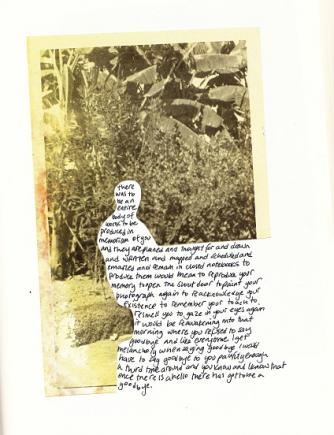 there
was to
be an
entire
body of
works to be
produced in
memoriam of you
and they are planned and thought for and drawn
and written and mapped and scheduled and
emailed and remain in closed notebooks to
produce them would mean to reproduce your
memory to open the shut door to paint your
photograph again to reacknowledge your
existence to remember your touch to
remind you to gaze in your eyes again
it would be reawakening into that
morning where you refused to say
goodbye and like everyone I get
melancholy when saying goodbye I would
have to say goodbye to you painfully enough
a third time around and you know and I know that
once there is a hello there has got to be a
goodbye.